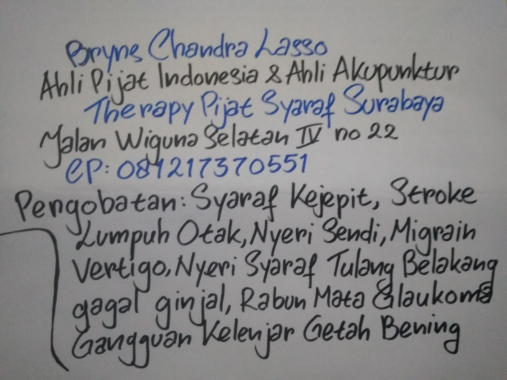 Bryne Chandra Lasso
Ahli Pijat Indonesia & Ahli Akupunktur
Therapy Pijat Syaraf Surabaya
Jalan Wiguna Selatan IV no 22
CP: 081217370551
Pengobatan: Syaraf Kejepit, Stroke
Lumpuh Otak, Nyeri Sendi, Migrain
Vertigo, Nyeri Syaraf Tulang Belakang
gagal ginjal, Rabun Mata Glaukoma
Gangguan Kelenjar Getah Bening